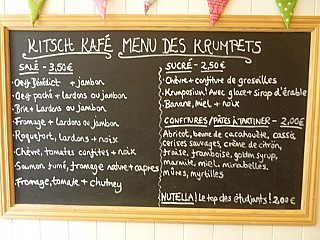 KITSCH KAFÉ MENU DES KRUMPETS
SALÉ - 3,50€
• Oeuf Bénédict + jambon
• Oeuf poché + lardons ou jambon
• Brie + Lardons ou jambon
• Fromage + Lardons ou jambon
• Roquefort, Lardons + noix
• Chèvre, tomates confites + noix
• Saumon fumé, fromage nature + capres
• Fromage, tomate + chutney
SUCRÉ - 2,50€
Chèvre + confiture de groseilles
Krumposium! Avec glace + sirop d'érable
Banane, miel + noix
CONFITURES/PÂTES À TARTINER - 2,00€
Abricot, beurre de cacahouète, cassis
cerises sauvages, crème de citron,
fraise, framboise, golden syrup,
marmite, miel, mirabelles,
mûres, myrtilles
NUTELLA! Le top des étudiants! 2,00€